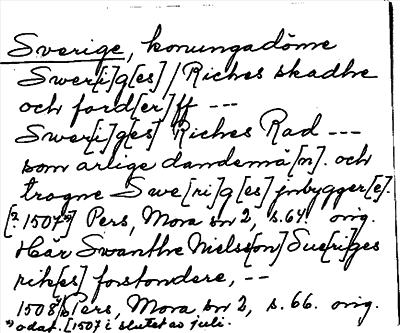 Sverige, konungadöme
Swer[i]g[es] / Riches skadhe
och ford[er]ff ---
Swer[i]g[es] Riches Rad ---
som ärlige dandemä[n]. och
trogne Swe[ri]g[es] jnbygger[e].
[? 1507*)] Pers, Mora sn 2, s. 64. orig.
Här Swanthe Nielss[on] Sue[ri]ges
rik[es] forstondere, --
1508 Pers, Mora sn 2, s. 66. orig.
*) odat. [1507 i slutet av juli.